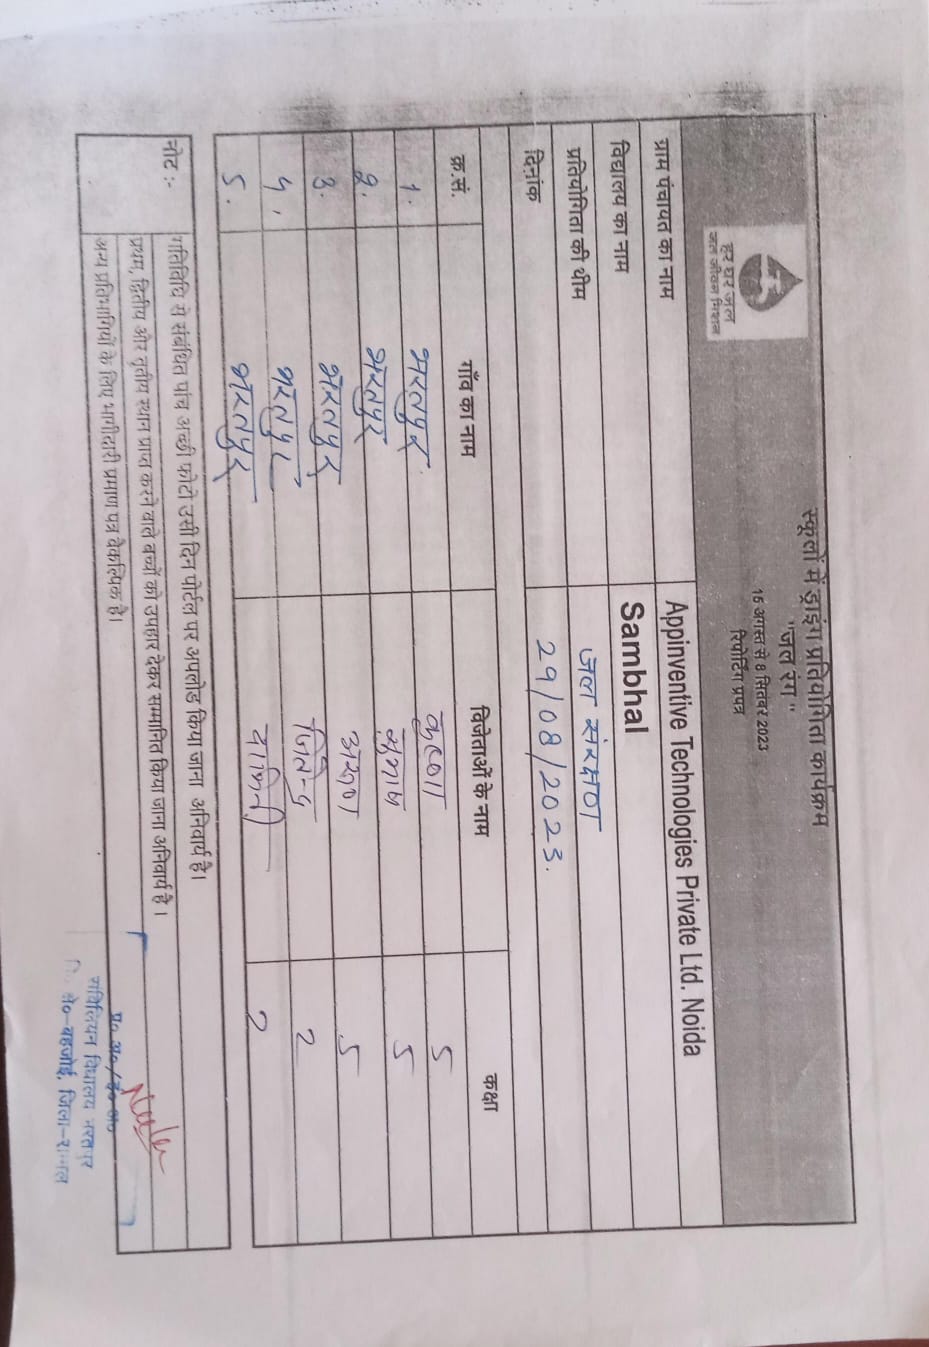 स्कूलों में ड्राइंग प्रतियोगिता कार्यक्रम
"जल रंग"
15 अगस्त से 8 सितंबर 2023
रिपोर्टिंग प्रपत्र
हर घर जल
जल जीवन मिशन
ग्राम पंचायत का नाम Appinventive Technologies Private Ltd. Noida
विद्यालय का नाम Sambhal
प्रतियोगिता की थीम जल संरक्षण
दिनांक 29/08/2023.
क्र.सं. गाँव का नाम विजेताओं के नाम कक्षा
1. भरतपुर 5
2. भरतपुर सुभाष 5
3. भरतपुर 5
4. भरतपुर जितेन्द्र 2
5. भरतपुर 2
नोट :- गतिविधि से संबंधित पांच अच्छी फोटो उसी दिन पोर्टल पर अपलोड किया जाना अनिवार्य है।
प्रथम, द्वितीय और तृतीय स्थान प्राप्त करने वाले बच्चों को उपहार देकर सम्मानित किया जाना अनिवार्य है।
अन्य प्रतिभागियों के लिए भागीदारी प्रमाण पत्र वैकल्पिक है।
प्र० अ०/इ० अ०
संविलियन विद्यालय भरतपुर
क्षे०-बहजोई, जिला-सम्भल